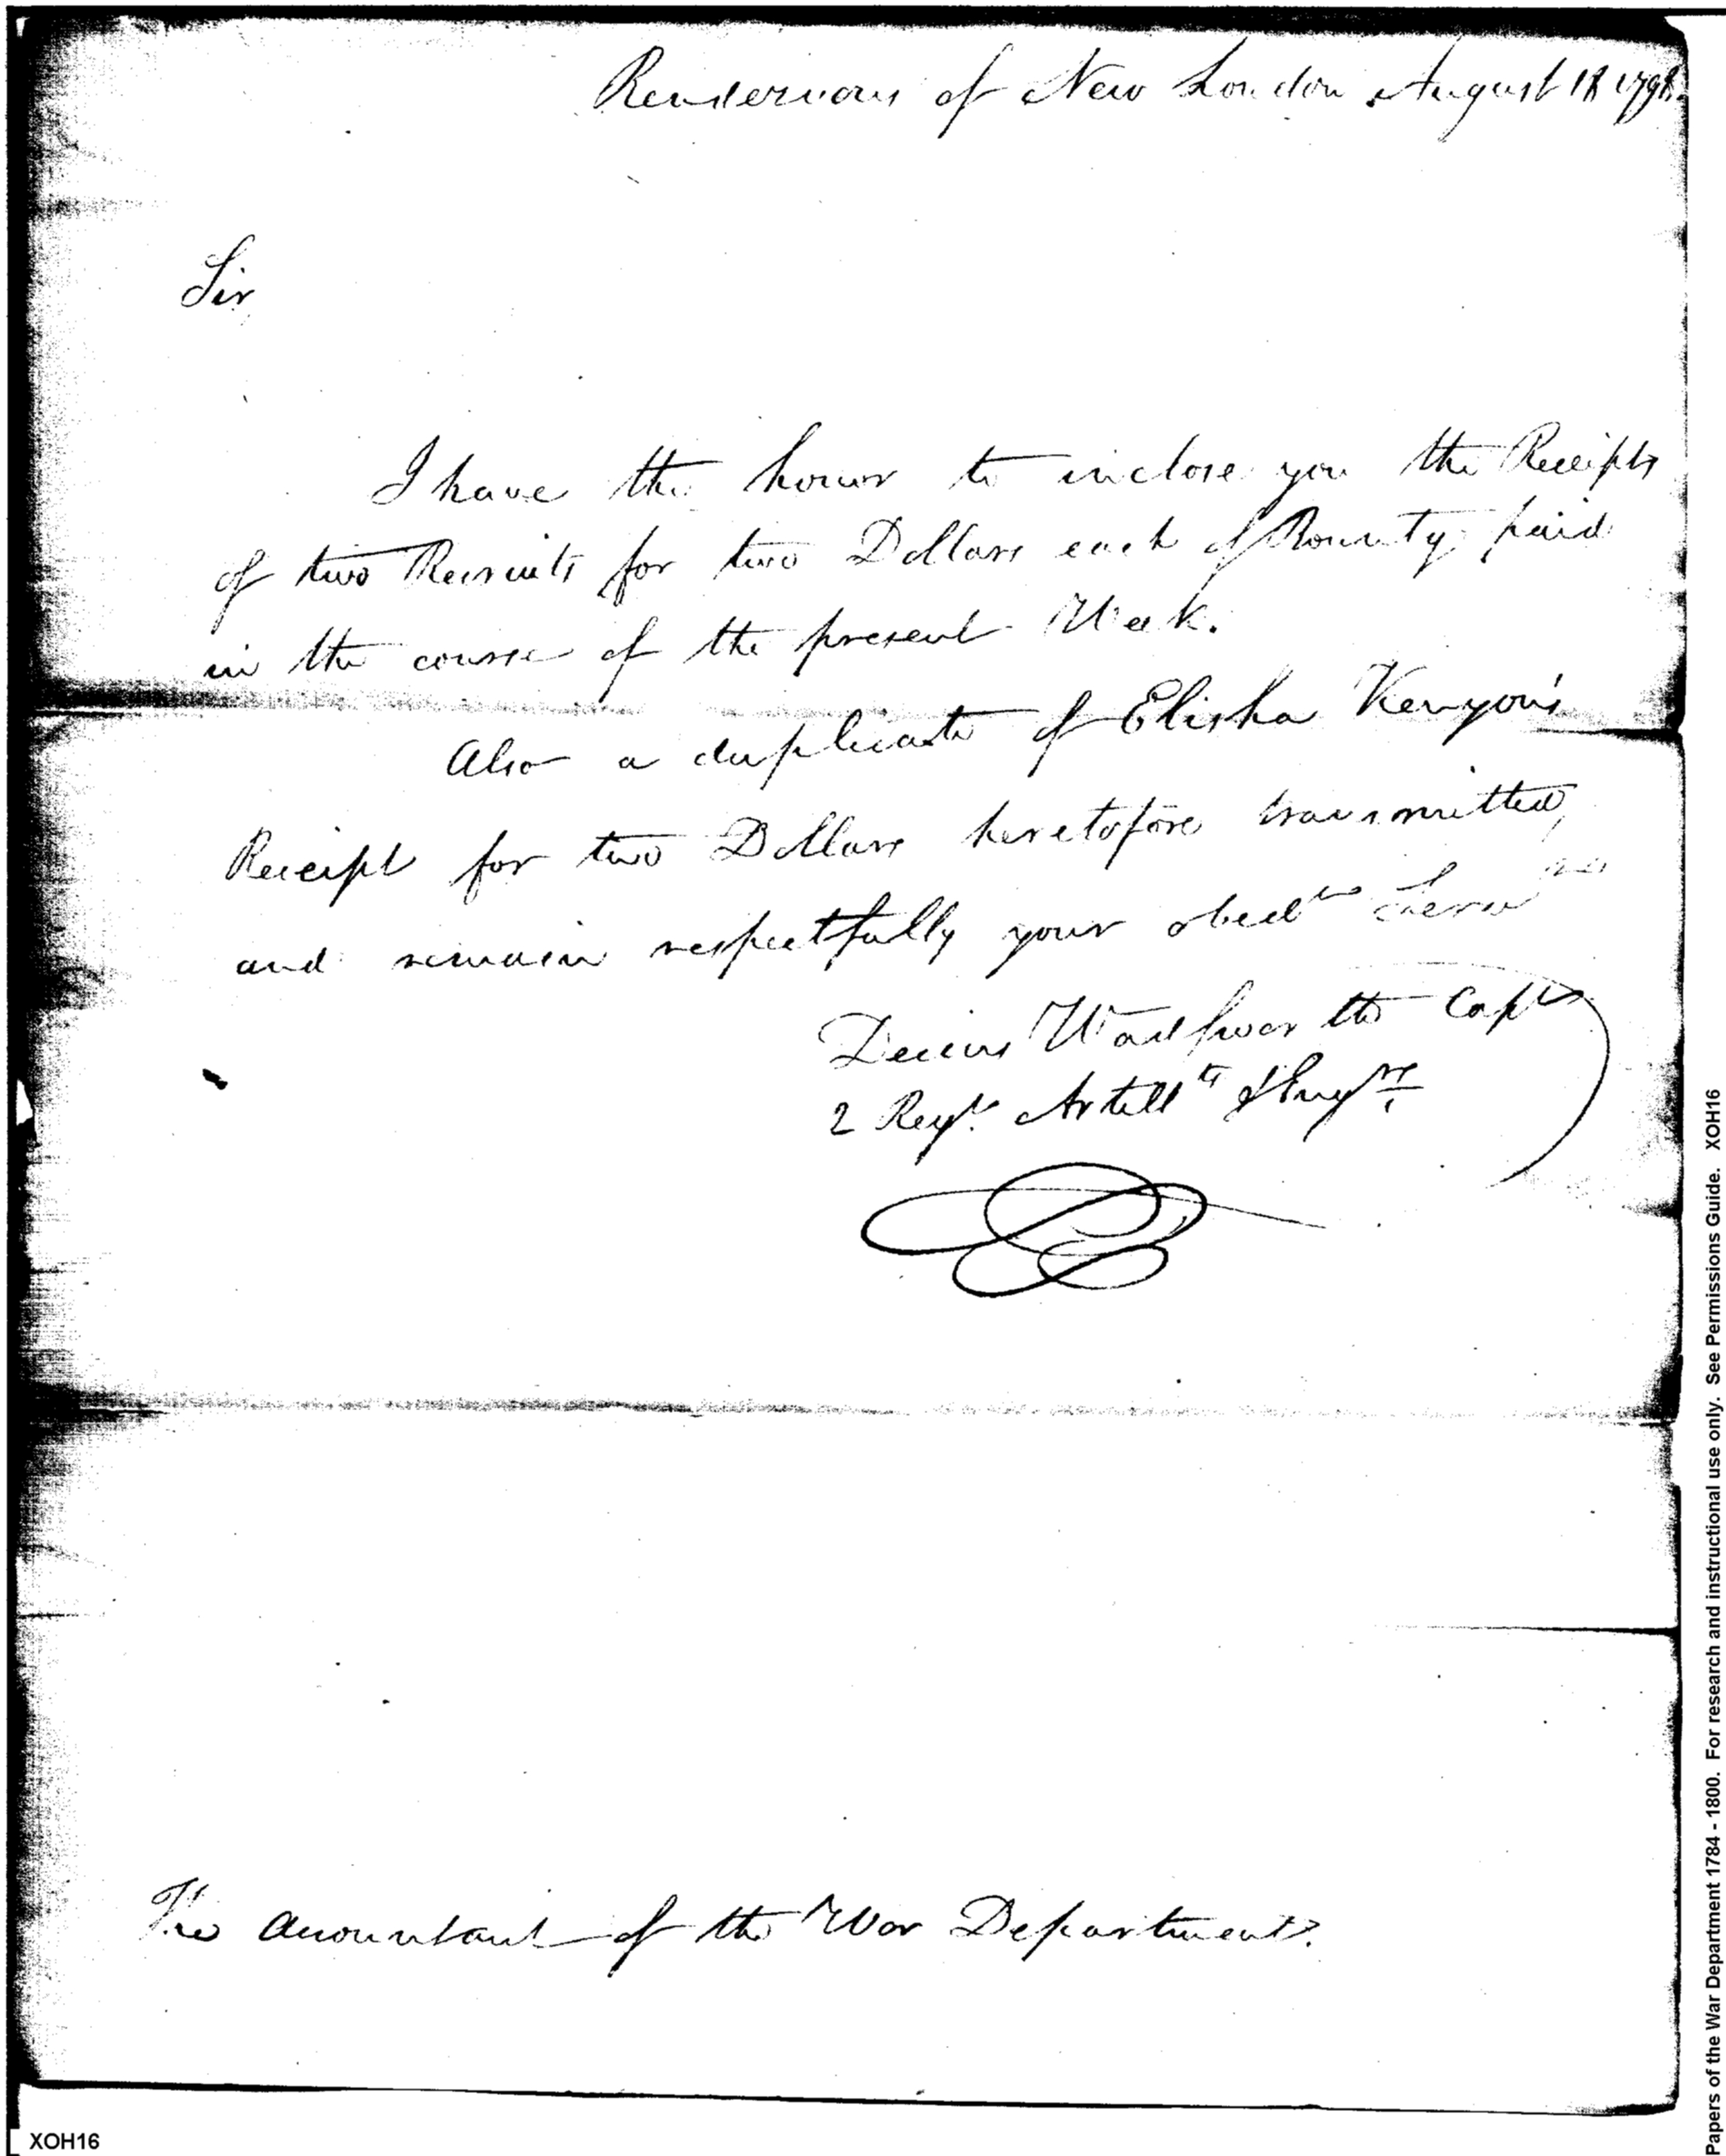 Rendezvous of New London August 18 1798.
Sir
I have the honor to inclose you the Receipts
of two Recruits for two Dollars each of Bounty paid
in the course of the present Week.
Also a duplicate of Elisha Kenyon's
Receipt for two Dollars heretofore transmitted,
and remain respectfully your obedt Serv
Decius Wadsworth Capt
2 Regt. Artillts & Engrs
The Accountant of the War Department.
XOH16
Papers of the War Department 1784 - 1800. For research and instructional use only. See Permissions Guide. XOH16